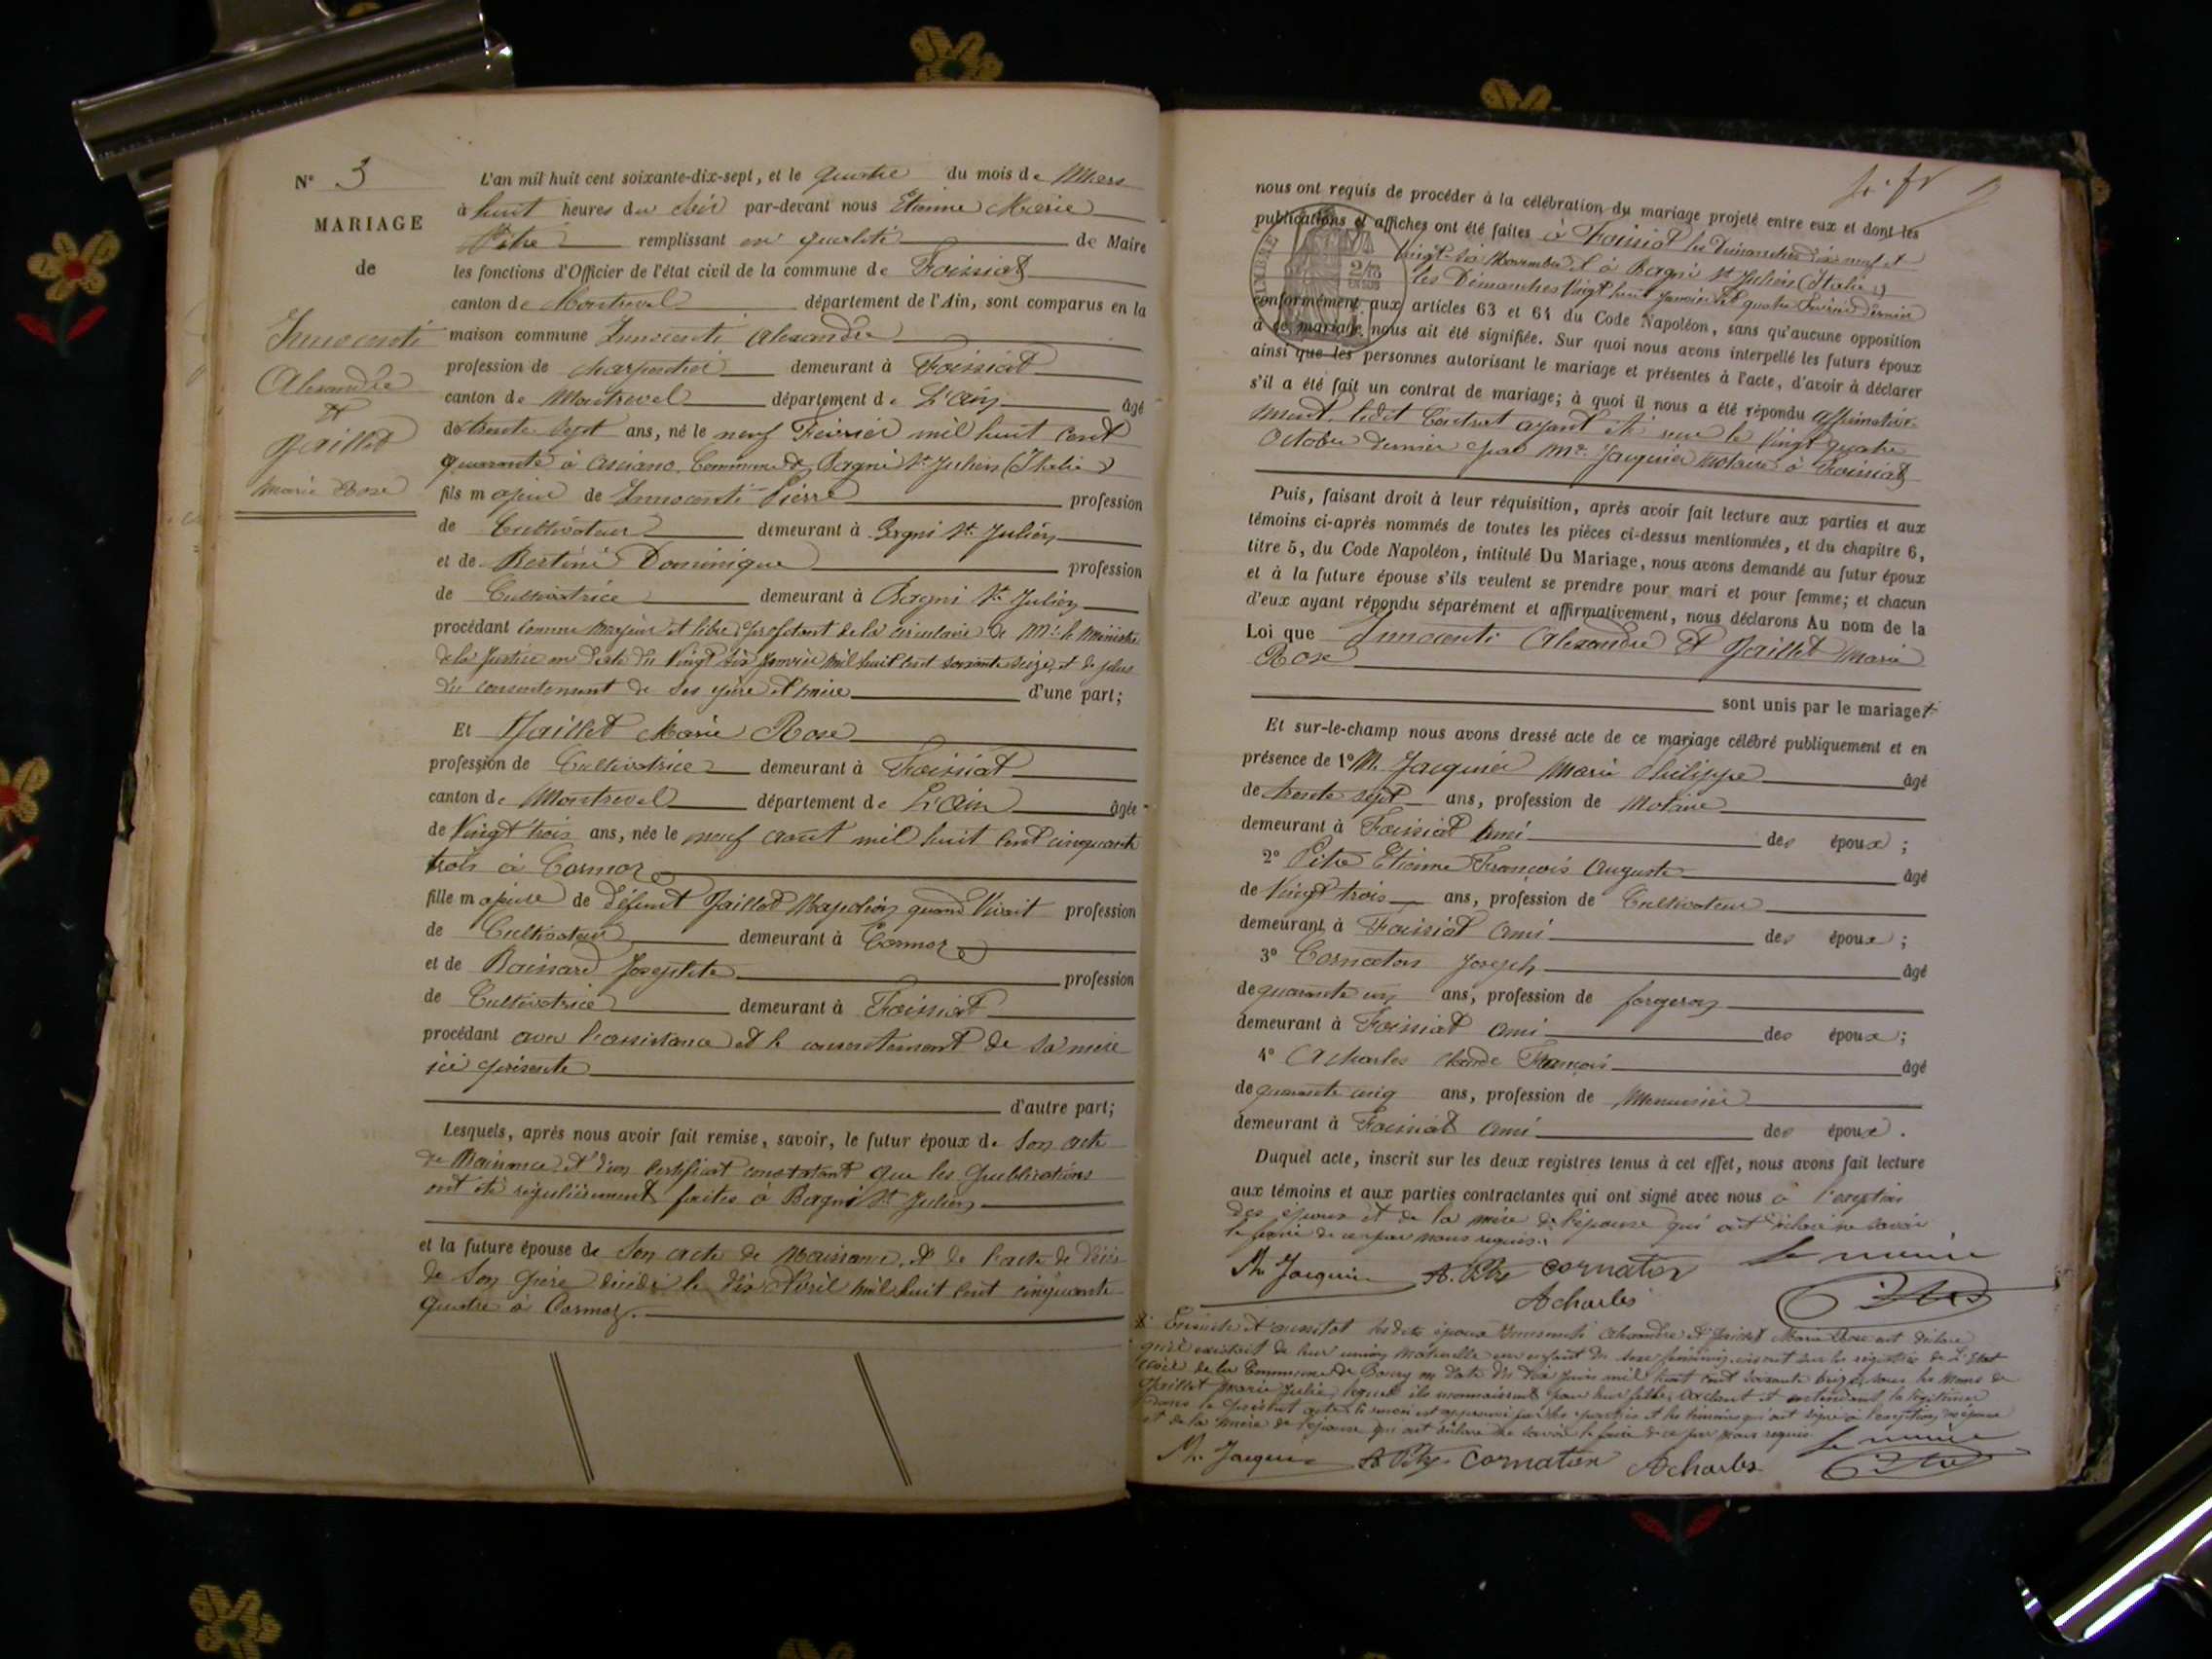 N° 3
MARIAGE
de
Innocenti
Alexandre
et
Jaillet
Marie Rose
L'an mil huit cent soixante-dix-sept, et le quatre du mois de Mars
à huit heures du soir par-devant nous Etienne Marie
Pitre remplissant en qualité de Maire
les fonctions d'Officier de l'état civil de la commune de Foissiat
canton de Montrevel département de l'Ain, sont comparus en la
maison commune Innocenti Alexandre
profession de charpentier demeurant à Foissiat
canton de Montrevel département de L'Ain âgé
de trente sept ans, né le neuf Février mil huit cent
quarante à Asciano Commune de Bagni St Julien (Italie)
fils majeur de Innocenti Pierre profession
de Cultivateur demeurant à Bagni St Julien
et de Bertini Dominique profession
de Cultivatrice demeurant à Bagni St Julien
procédant comme majeur et libre, profitant de la circulaire de Mr le Ministre
de la Justice en date du Vingt six Janvier mil huit cent soixante seize et de plus
du consentement de ses père et mère d'une part;
Et Jaillet Marie Rose
profession de Cultivatrice demeurant à Foissiat
canton de Montrevel département de L'Ain âgée
de Vingt trois ans, née le neuf août mil huit cent cinquante
trois à Cormoz
fille majeure de défunt Jaillet Napoléon quand Vivait profession
de Cultivateur demeurant à Cormoz
et de Boissard Josephte profession
de Cultivatrice demeurant à Foissiat
procédant avec l'assistance et le consentement de sa mère
ici présente
d'autre part;
Lesquels, après nous avoir fait remise, savoir, le futur époux de Son acte
de Naissance et d'un certificat constatant que les publications
ont été régulièrement faites à Bagni St Julien
et la future épouse de Son acte de Naissance, et de l'acte de décès
de Son père décédé le dix Avril mil huit cent cinquante
quatre à Cormoz.
nous ont requis de procéder à la célébration du mariage projeté entre eux et dont les
publications et affiches ont été faites à Foissiat les Dimanches dix neuf et
Vingt-six Novembre et à Bagni St Julien (Italie)
les Dimanches Vingt huit Janvier et quatre Février dernier
TIMBRE
conformément aux articles 63 et 64 du Code Napoléon, sans qu'aucune opposition
à ce mariage nous ait été signifiée. Sur quoi nous avons interpellé les futurs époux
ainsi que les personnes autorisant le mariage et présentes à l'acte, d'avoir à déclarer
s'il a été fait un contrat de mariage; à quoi il nous a été répondu affirmative-
ment, ledit Contrat ayant été reçu le Vingt quatre
Octobre dernier par Me Jacquier Notaire à Foissiat
Puis, faisant droit à leur réquisition, après avoir fait lecture aux parties et aux
témoins ci-après nommés de toutes les pièces ci-dessus mentionnées, et du chapitre 6,
titre 5, du Code Napoléon, intitulé Du Mariage, nous avons demandé au futur époux
et à la future épouse s'ils veulent se prendre pour mari et pour femme; et chacun
d'eux ayant répondu séparément et affirmativement, nous déclarons Au nom de la
Loi que Innocenti Alexandre et Jaillet Marie
Rose
sont unis par le mariage
Et sur-le-champ nous avons dressé acte de ce mariage célébré publiquement et en
présence de 1° M. Jacquier Marie Philippe âgé
de trente sept ans, profession de Notaire
demeurant à Foissiat ami des époux ;
2° Pitre Etienne François Auguste âgé
de Vingt trois ans, profession de Cultivateur
demeurant à Foissiat ami des époux ;
3° Cornaton Joseph âgé
de quarante un ans, profession de forgeron
demeurant à Foissiat ami des époux ;
4° Acharles Claude François âgé
de quarante cinq ans, profession de Menuisier
demeurant à Foissiat ami des époux .
Duquel acte, inscrit sur les deux registres tenus à cet effet, nous avons fait lecture
aux témoins et aux parties contractantes qui ont signé avec nous à l'exception
des époux et de la mère de l'épouse qui ont déclaré ne savoir
le faire de ce par nous requis.
Ph. Jacquier A. Pitre Cornaton Le maire
Acharles Pitre
Ensuite et aussitot lesdits époux Innocenti Alexandre et Jaillet Marie Rose ont déclaré
qu'il existait de leur union Naturelle un enfant du sexe féminin, inscrit sur les registres de L'Etat
civil de la Commune de Bourg en date du dix juin mil huit cent soixante treize, sous les noms de
Jaillet Marie Julie, lequel ils reconnaissent pour leur fille, voulant et entendant la légitimer
dans le présent acte, le renvoi est approuvé par les parties et les témoins qui ont signé à l'exception des époux
et de la mère de l'épouse qui ont déclaré ne savoir le faire de ce par nous requis
Ph. Jacquier A. Pitre Cornaton Acharles Le maire
Pitre